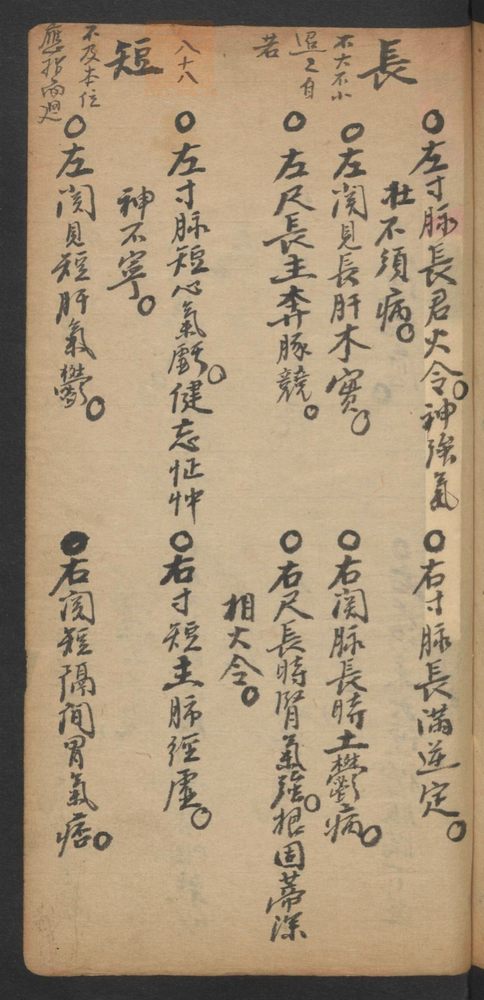 長
不大不小
迢迢自
若
○左寸脉長君火令。神強氣
壯不須病。
○右寸脉長滿逆定。
○左関見長肝木實。
○右関脉長時土欝病。
○左尺長主奔豚競。
○右尺長時腎氣強。根固蒂深
相火令。
八十八
短
不及本位
應指而廻
○左寸脉短心氣虧。健忘怔忡
神不寧。
○右寸短主肺經虛。
○左関見短肝氣欝。
●右関短隔間胃氣痞。